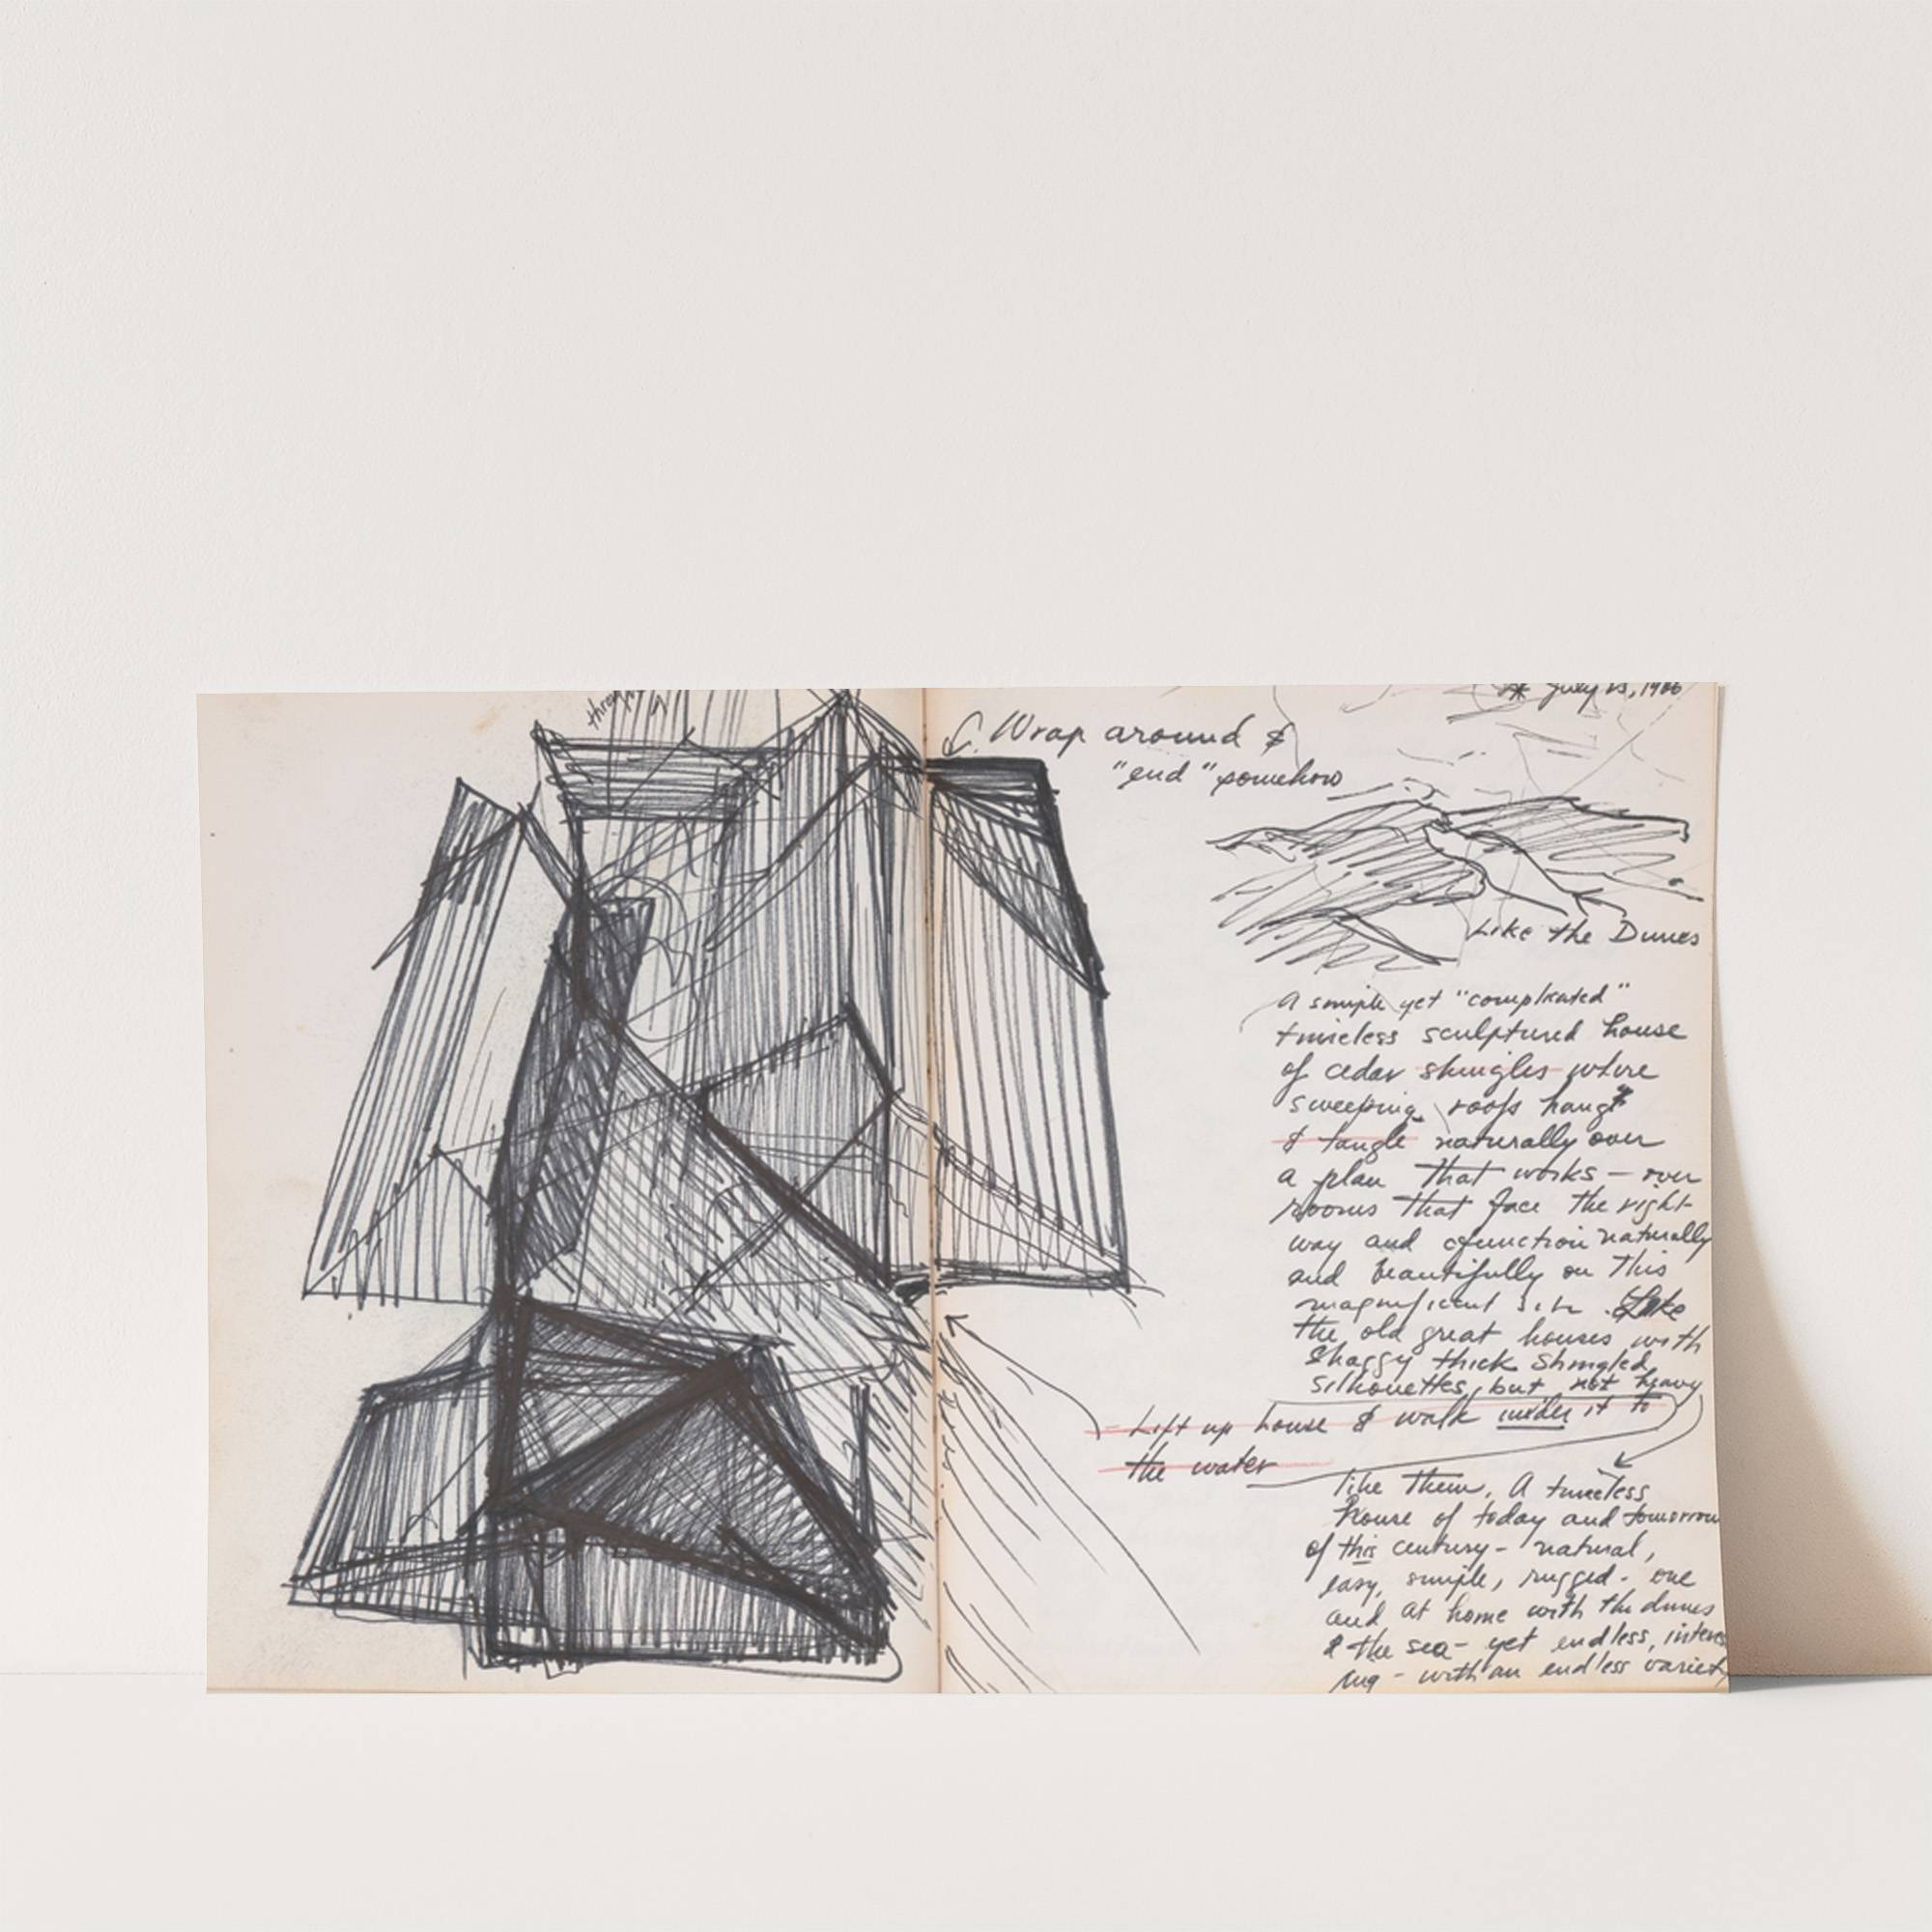 July 23, 19
Wrap around &
"end" somehow
Like the Dunes
A simple yet "complicated"
timeless sculptured house
of cedar shingles where
sweeping roofs hang
& tangle naturally over
a plan that works - over
rooms that face the right
way and function naturally
and beautifully on this
magnificent site. Like
the old great houses with
shaggy thick shingled
silhouettes, but not heavy
Lift up house & walk under it to
the water
like them. A timeless
house of today and tomorrow
of this century - natural,
easy, simple, rugged - one
and at home with the dunes
& the sea - yet endless, interes
ing - with an endless variety